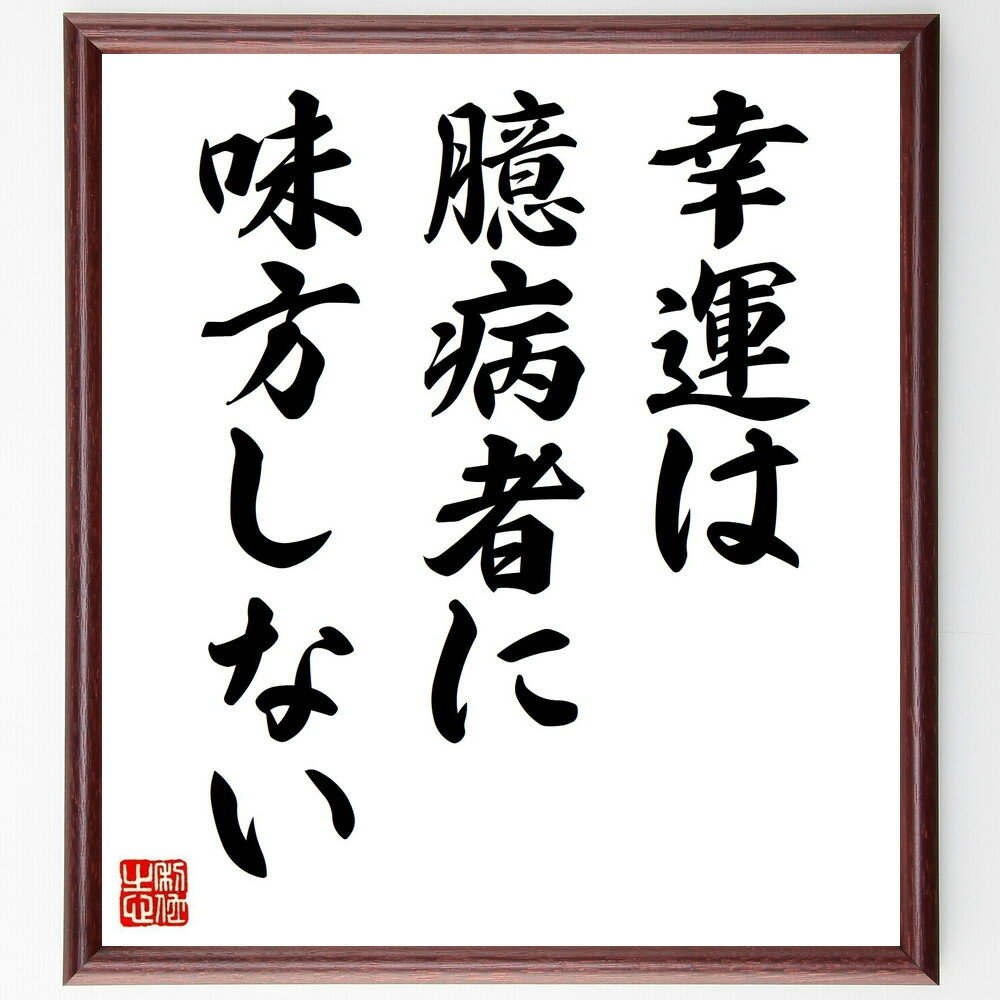 幸運は
臆病者に
味方しない